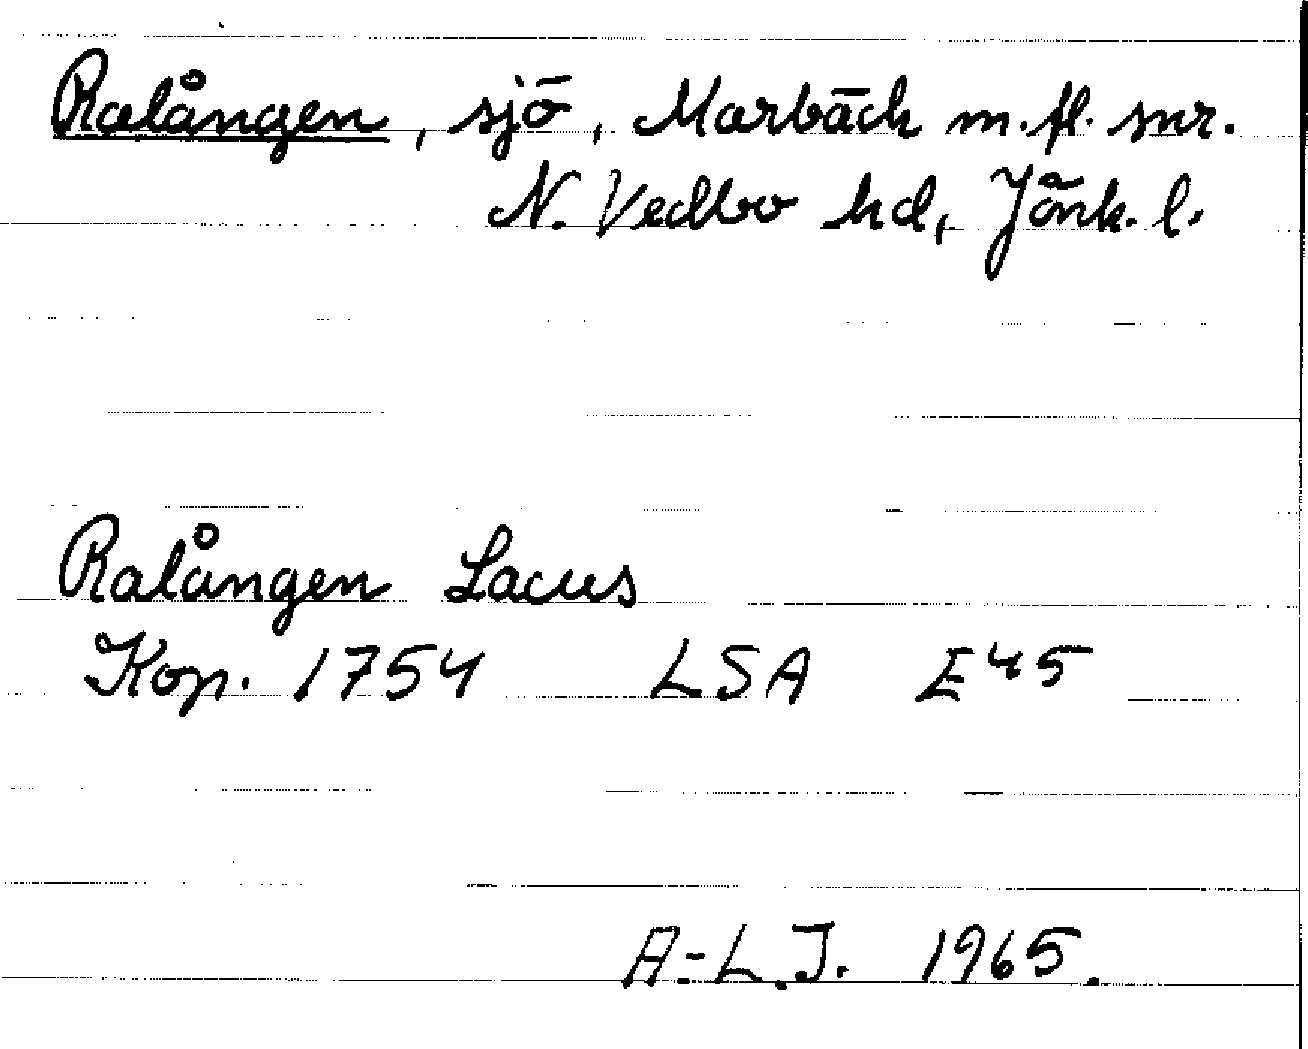 Ralången, sjö, Marbäck m.fl. snr.
N. Vedbo hd, Jönk. l.
Ralången Lacus
Kop. 1754 LSA E45
A-L.J. 1965.